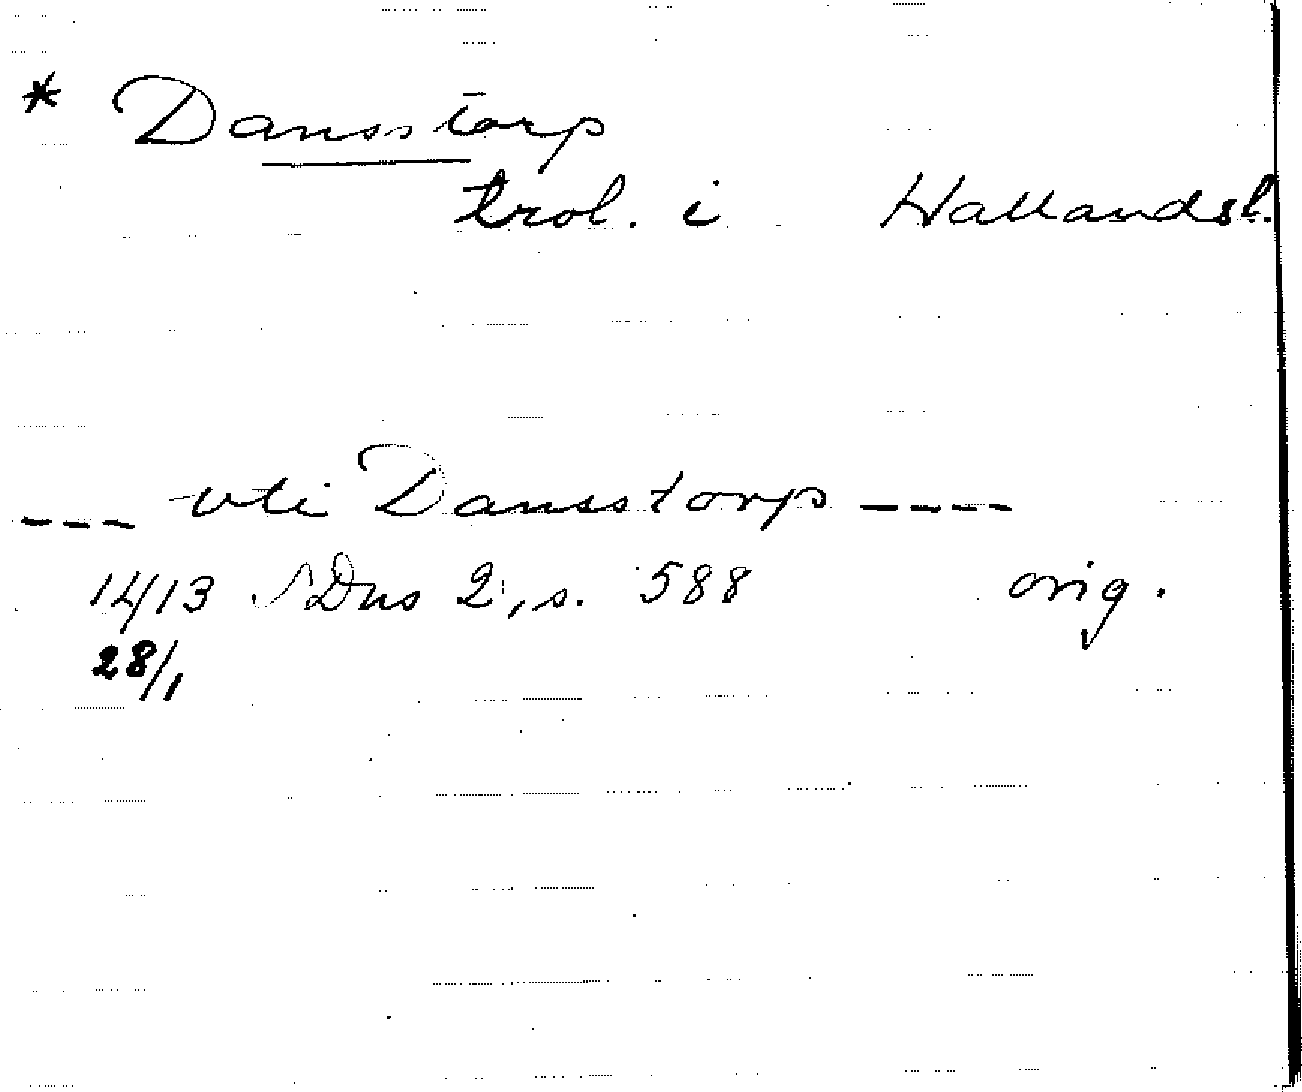 * Dansstorp
trol. i Hallandsl.
--- vti Dansstorp ----
1413 SDns 2, s. 588 orig.
28/1